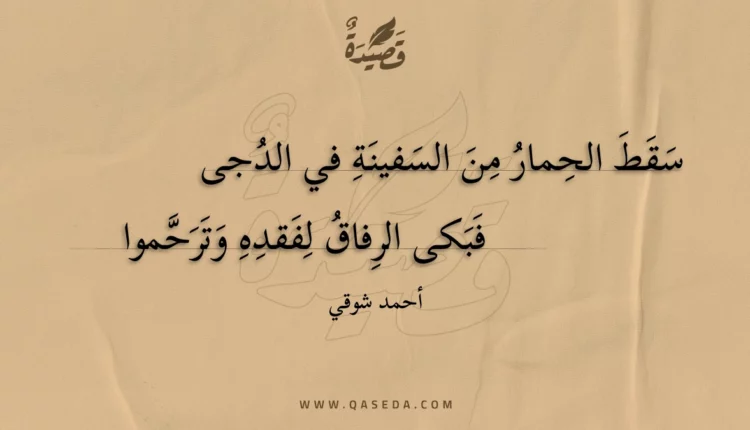 قَصِيدَةٌ
سَقَطَ الحِمارُ مِنَ السَفينَةِ في الدُجى
فَبَكى الرِفاقُ لِفَقدِهِ وَتَرَحَّموا
أحمد شوقي
WWW.QASEDA.COM